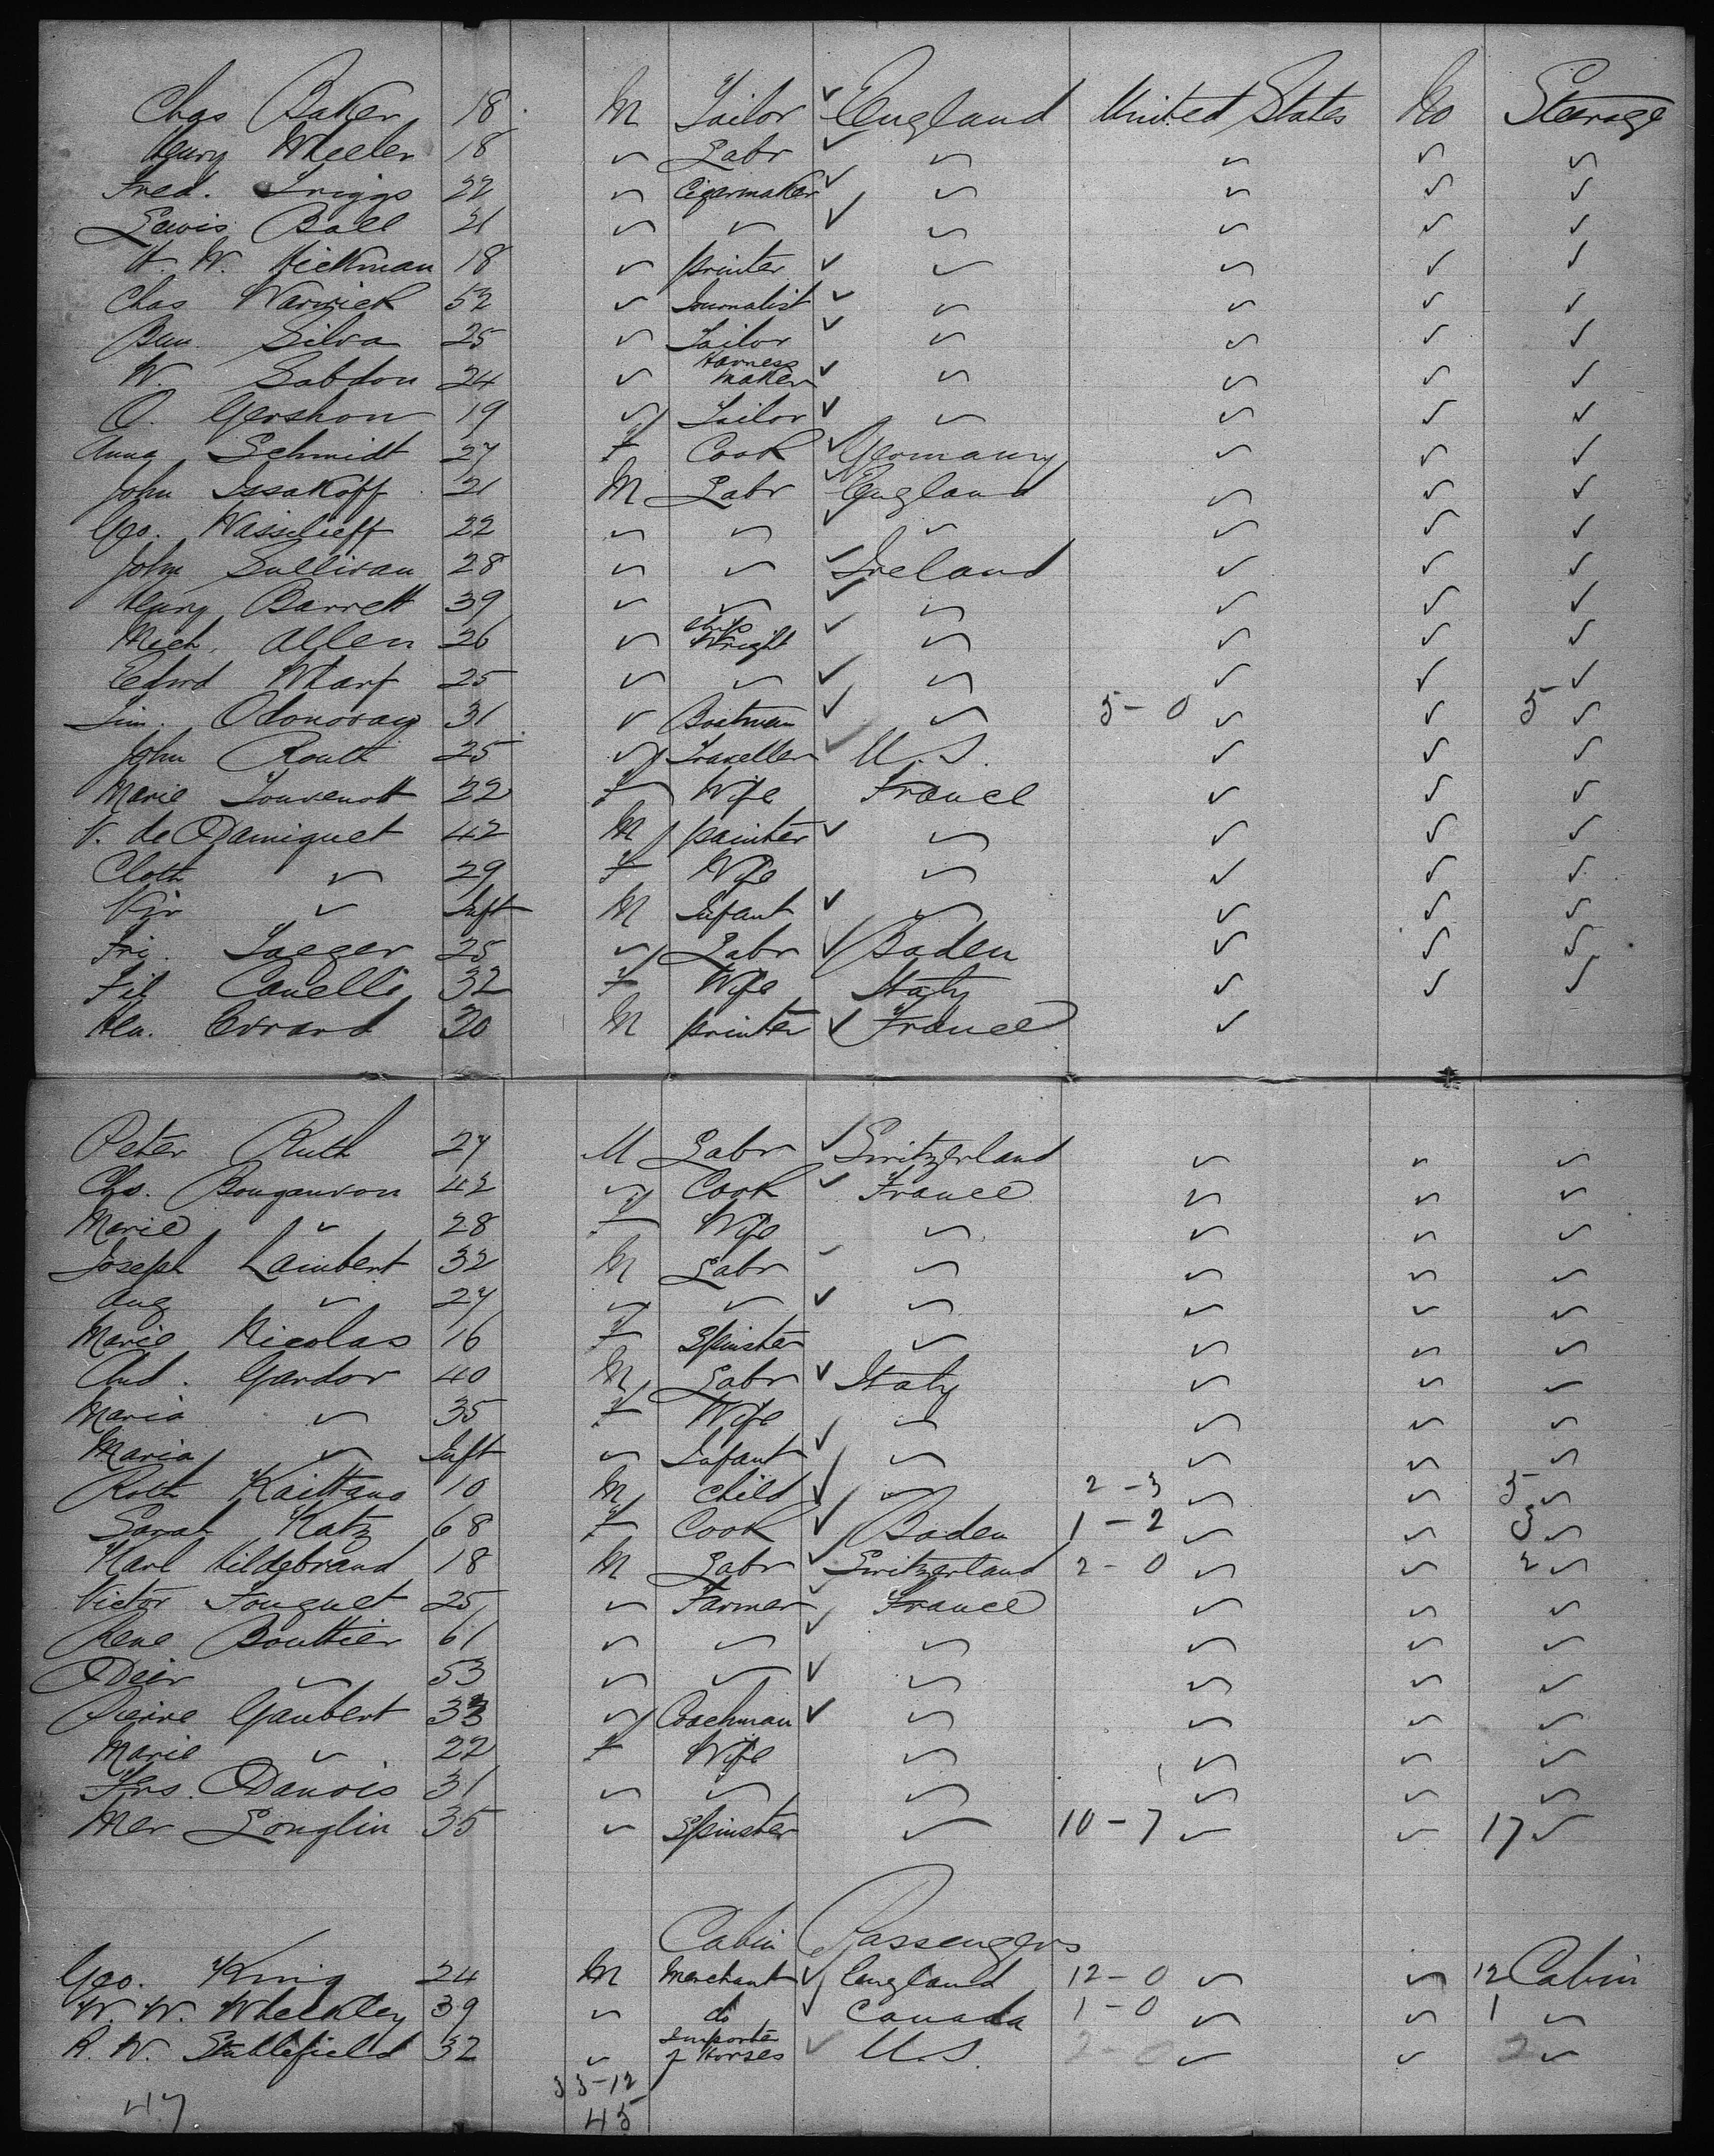 Chas Baker 18 M Tailor ✓ England United States No Steerage
Henry Wheeler 18 " Labr ✓ " " " "
Fred. Griggs 22 " Cigarmaker ✓ " " " "
Lewis Ball 21 " " ✓ " " " "
H. W. Hickman 18 " printer ✓ " " " "
Chas Warwick 52 " Journalist ✓ " " " "
Ben Silva 25 " Tailor ✓ " " " "
W. Sabdon 24 " Harness maker ✓ " " " "
O. Gershon 19 " Tailor ✓ " " " "
Anna Schmidt 27 F Cook ✓ Germany " " "
John Issakoff 21 M Labr ✓ England " " "
Geo. Wassilieff 22 " " ✓ " " " "
John Sullivan 28 " " ✓ Ireland " " "
Henry Barrett 39 " " ✓ " " " "
Mich. Allen 26 " ship Wright ✓ " " " "
Edwd Wharf 25 " " ✓ " " " "
Jim. Odonovan 31 " Boatman ✓ " 5-0 " " 5 "
John Routh 25 " Traveller ✓ U.S. " " "
Marie Jouvenott 22 F Wife France " " "
V. de Damiguet 42 M painter ✓ " " " "
Cloth " 29 F Wife " " " "
Vir " Inft M Infant ✓ " " " "
Fri. Jaeger 25 " Labr ✓ Baden " " "
Fil Canelli 32 F Wife Italy " " "
Hen. Evrard 30 M printer ✓ France "
Peter Ruth 27 M Labr ✓ Switzerland " " "
Chs. Bougauvon 42 " Cook ✓ France " " "
Marie " 28 F Wife " " " "
Joseph Lambert 32 M Labr ✓ " " " "
Aug " 27 " " ✓ " " " "
Marie Nicolas 16 F Spinster " " " "
And. Gardor 40 M Labr ✓ Italy " " "
Maria " 35 F Wife " " " "
Maria " Inft " Infant ✓ " " " "
Roth Kaittano 10 M child ✓ " 2-3 " " 5 "
Sarah Katz 68 F Cook ✓ Baden 1-2 " " 3 "
Karl Hildebrand 18 M Labr ✓ Switzerland 2-0 " " 2 "
Victor Fouguet 25 " Farmer ✓ France " " "
Rene Bouttier 61 " " ✓ " " " "
" 53 " " ✓ " " " "
Pierre Gaubert 33 " Coachman ✓ " " " "
Marie " 22 F Wife " " " "
Frs. Danois 31 " " " " " "
Mer Longlin 35 " Spinster " 10-7 " " 17 "
Cabin Passengers
Geo. King 24 M Merchant ✓ England 12-0 " " 12 Cabin
W. W. Wheckley 39 " do Canada 1-0 " " 1 "
R. W. Stublefield 32 " Importer of Horses ✓ U.S. 2-0 " " 2 "
33-12
47 45